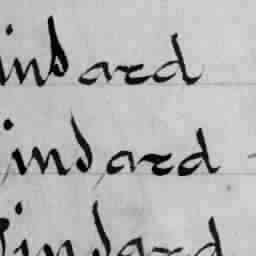 indard
indard
indard